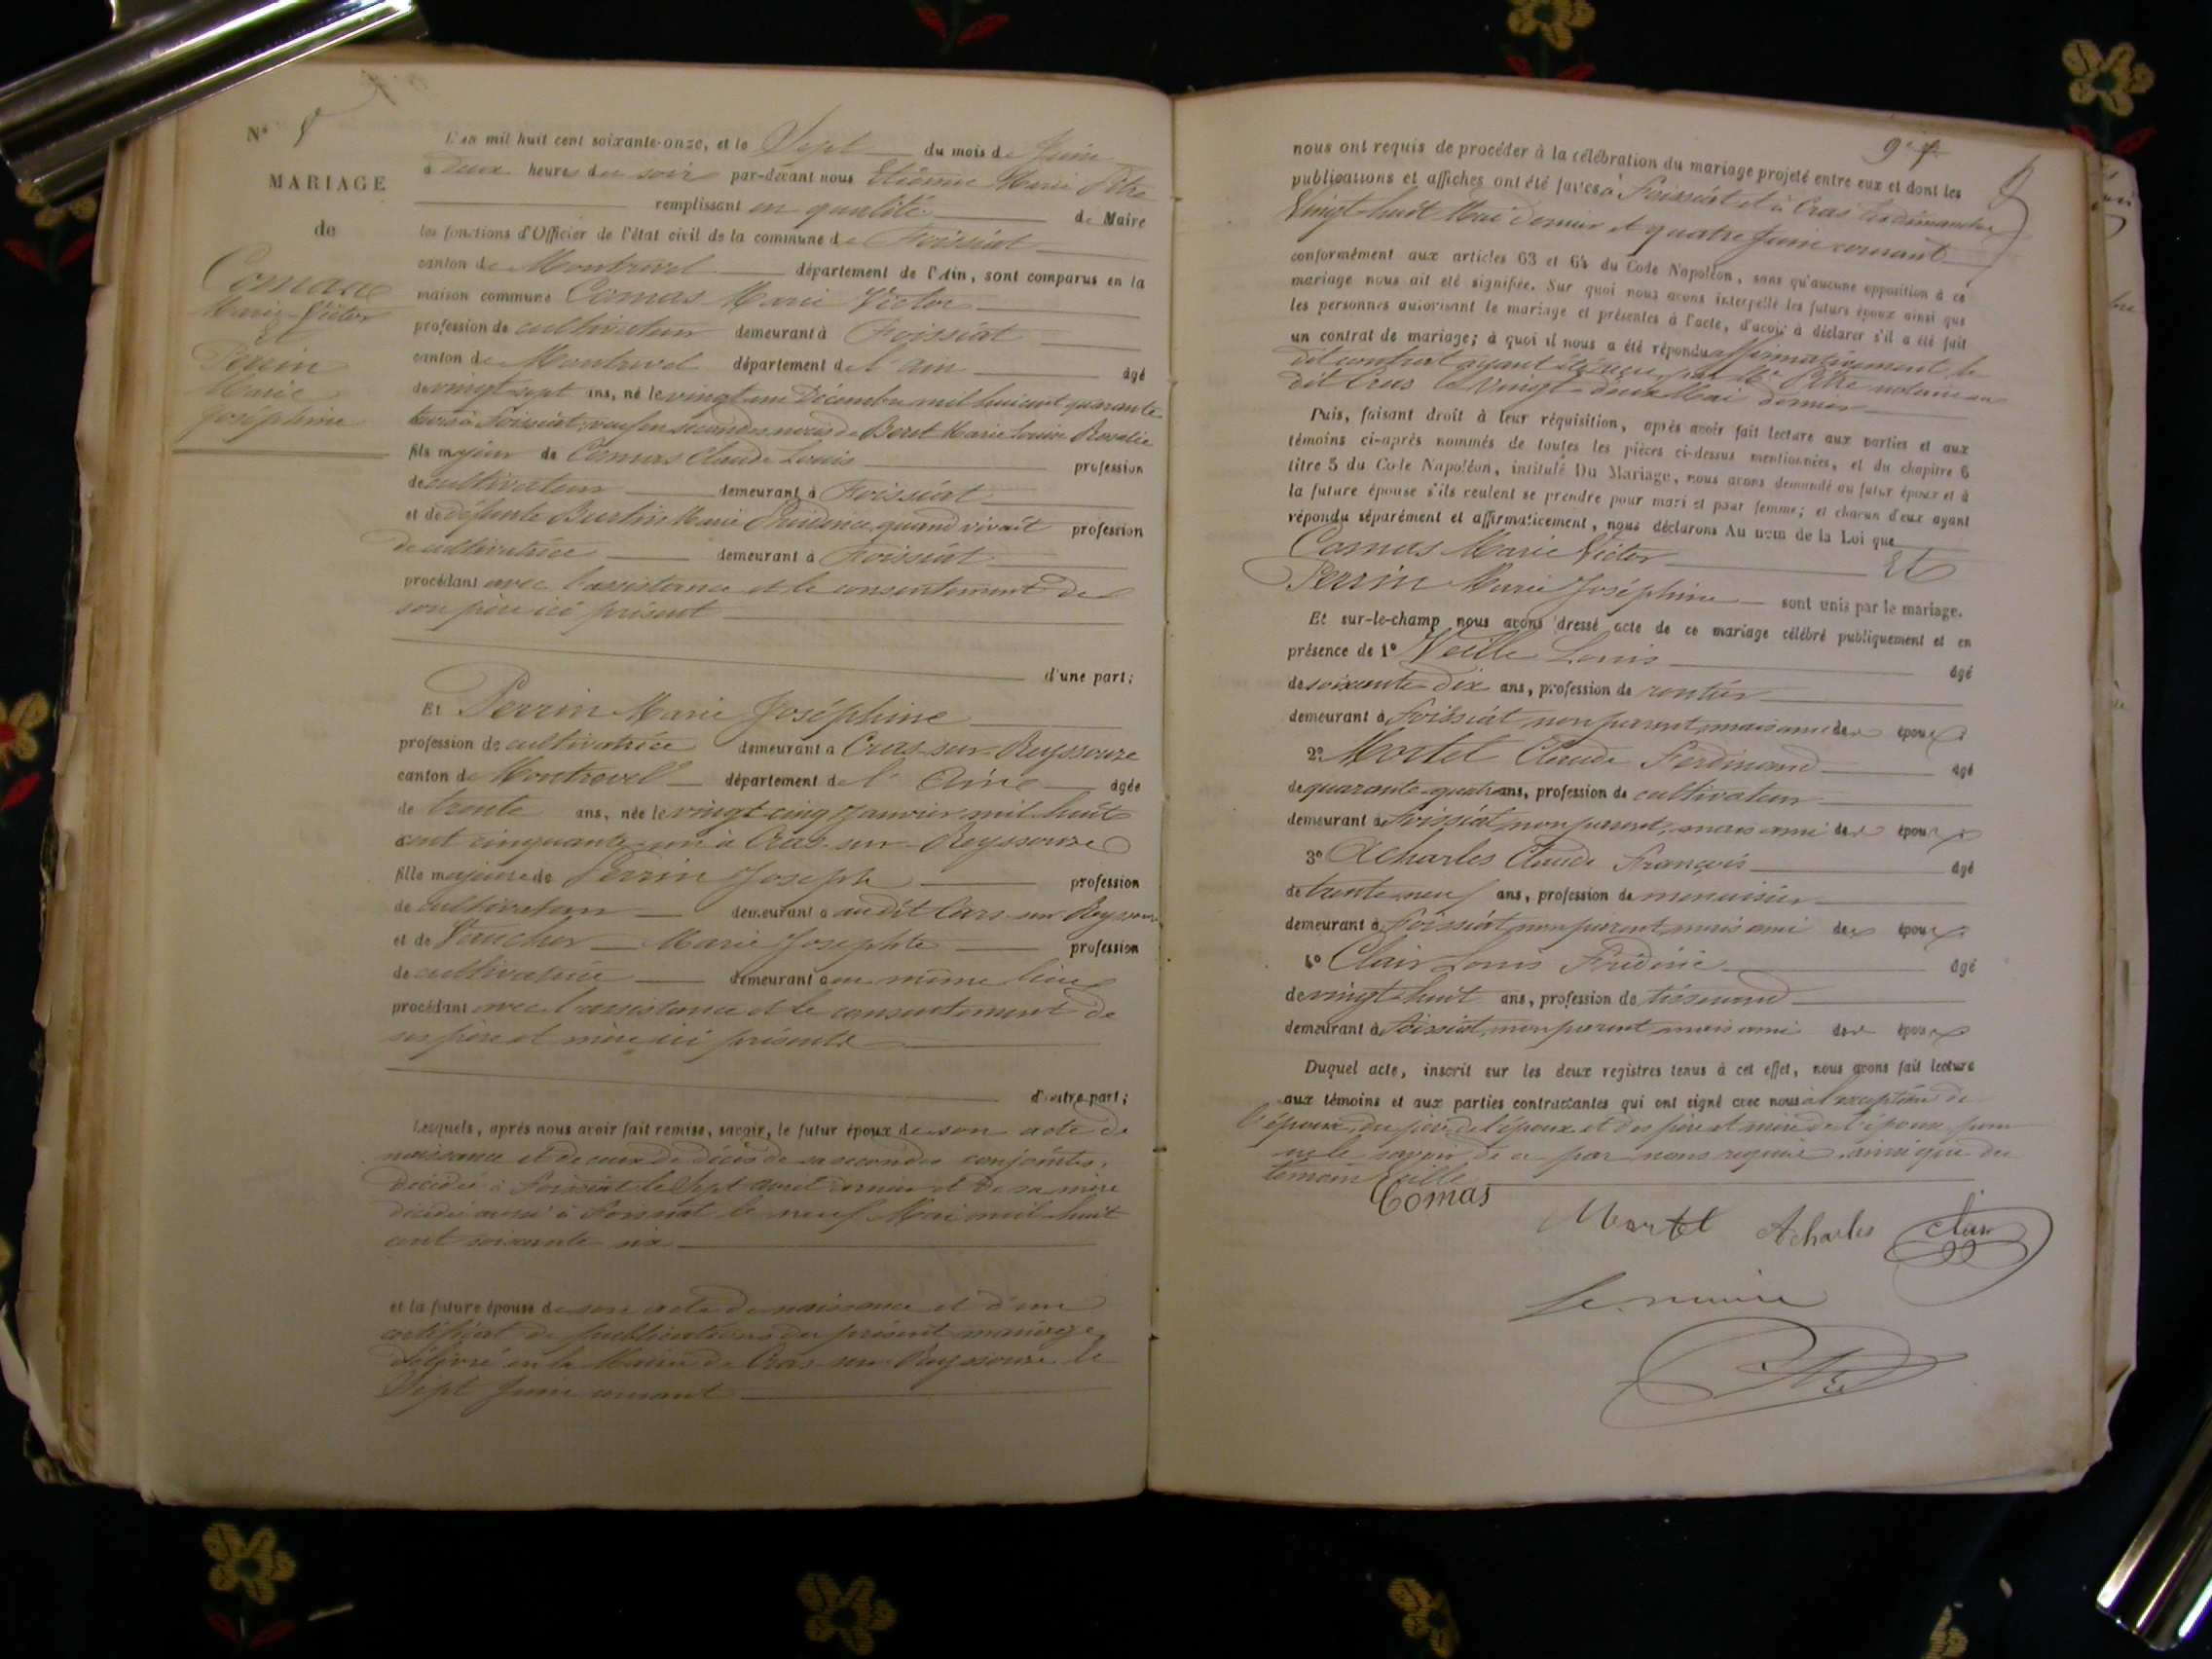 N° 8
MARIAGE
de
Comas
Marie-Victor
Et
Perrin
Marie
Joséphine
L'an mil huit cent soixante-onze, et le Sept du mois de Juin
à deux heures du soir par-devant nous Etienne Marie Pitre
remplissant en qualité de Maire
les fonctions d'Officier de l'état civil de la commune de Foissiat
canton de Montrevel département de l'Ain, sont comparus en la
maison commune Comas Marie Victor
profession de cultivateur demeurant à Foissiat
canton de Montrevel département de l'ain âgé
de vingt sept ans, né le vingt un Décembre mil huit cent quarante
trois à Foissiat, veuf en secondes noces de Beret Marie Louise Rosalie
fils majeur de Comas Claude Louis profession
de cultivateur demeurant à Foissiat
et de défunte Burtin Marie Prudence quand vivait profession
de cultivatrice demeurant à Foissiat
procédant avec l'assistance et le consentement de
son père ici présent
d'une part;
Et Perrin Marie Joséphine
profession de cultivatrice demeurant à Cras-sur-Reyssouze
canton de Montrevel département de l'Ain âgée
de trente ans, née le vingt-cinq Janvier mil huit
cent cinquante-un à Cras-sur-Reyssouze
fille majeure de Perrin Joseph profession
de cultivateur demeurant à audit Cras-sur-Reyssouze
et de Vaucher Marie Josephte profession
de cultivatrice demeurant à au même lieu
procédant avec l'assistance et le consentement de
ses père et mère ici présents
d'autre part;
Lesquels, après nous avoir fait remise, savoir, le futur époux de son acte de
naissance et de ceux de décès de sa seconde conjointe,
décédée à Foissiat le Sept avril dernier et de sa mère
décédée aussi à Foissiat le neuf Mai mil huit
cent soixante six
et la future épouse de son acte de naissance et d'un
certificat de publications du présent mariage
délivré en la Mairie de Cras-sur-Reyssouze le
Sept Juin courant
9e f
nous ont requis de procéder à la célébration du mariage projeté entre eux et dont les
publications et affiches ont été faites à Foissiat et à Cras les dimanches
Vingt-huit Mai dernier et quatre Juin courant
conformément aux articles 63 et 64 du Code Napoléon, sans qu'aucune opposition à ce
mariage nous ait été signifiée. Sur quoi nous avons interpellé les futurs époux ainsi que
les personnes autorisant le mariage et présentes à l'acte, d'avoir à déclarer s'il a été fait
un contrat de mariage; à quoi il nous a été répondu affirmativement le
dit contrat ayant été reçu par Me Pitre notaire au
dit Cras le vingt-deux Mai dernier
Puis, faisant droit à leur réquisition, après avoir fait lecture aux parties et aux
témoins ci-après nommés de toutes les pièces ci-dessus mentionnées, et du chapitre 6
titre 5 du Code Napoléon, intitulé Du Mariage, nous avons demandé au futur époux et à
la future épouse s'ils veulent se prendre pour mari et pour femme; et chacun d'eux ayant
répondu séparément et affirmativement, nous déclarons Au nom de la Loi que
Comas Marie Victor Et
Perrin Marie Joséphine sont unis par le mariage.
Et sur-le-champ nous avons dressé acte de ce mariage célébré publiquement et en
présence de 1° Veille Louis âgé
de soixante-dix ans, profession de rentier
demeurant à Foissiat non parent, mais ami des époux
2° Mortel Claude Ferdinand âgé
de quarante-quatre ans, profession de cultivateur
demeurant à Foissiat, non parent, mais ami des époux
3° Acharles Claude François âgé
de trente-neuf ans, profession de menuisier
demeurant à Foissiat, non parent, mais ami des époux
4° Clair Louis Frédéric âgé
de vingt-huit ans, profession de tisserand
demeurant à Foissiat, non parent mais ami des époux
Duquel acte, inscrit sur les deux registres tenus à cet effet, nous avons fait lecture
aux témoins et aux parties contractantes qui ont signé avec nous à l'exception de
l'épouse, du père de l'époux et des père et mère de l'épouse, pour
ne le savoir de ce par nous requis, ainsi que du
témoin Veille
Comas
Mortel Acharles Clair
Le maire
Pitre